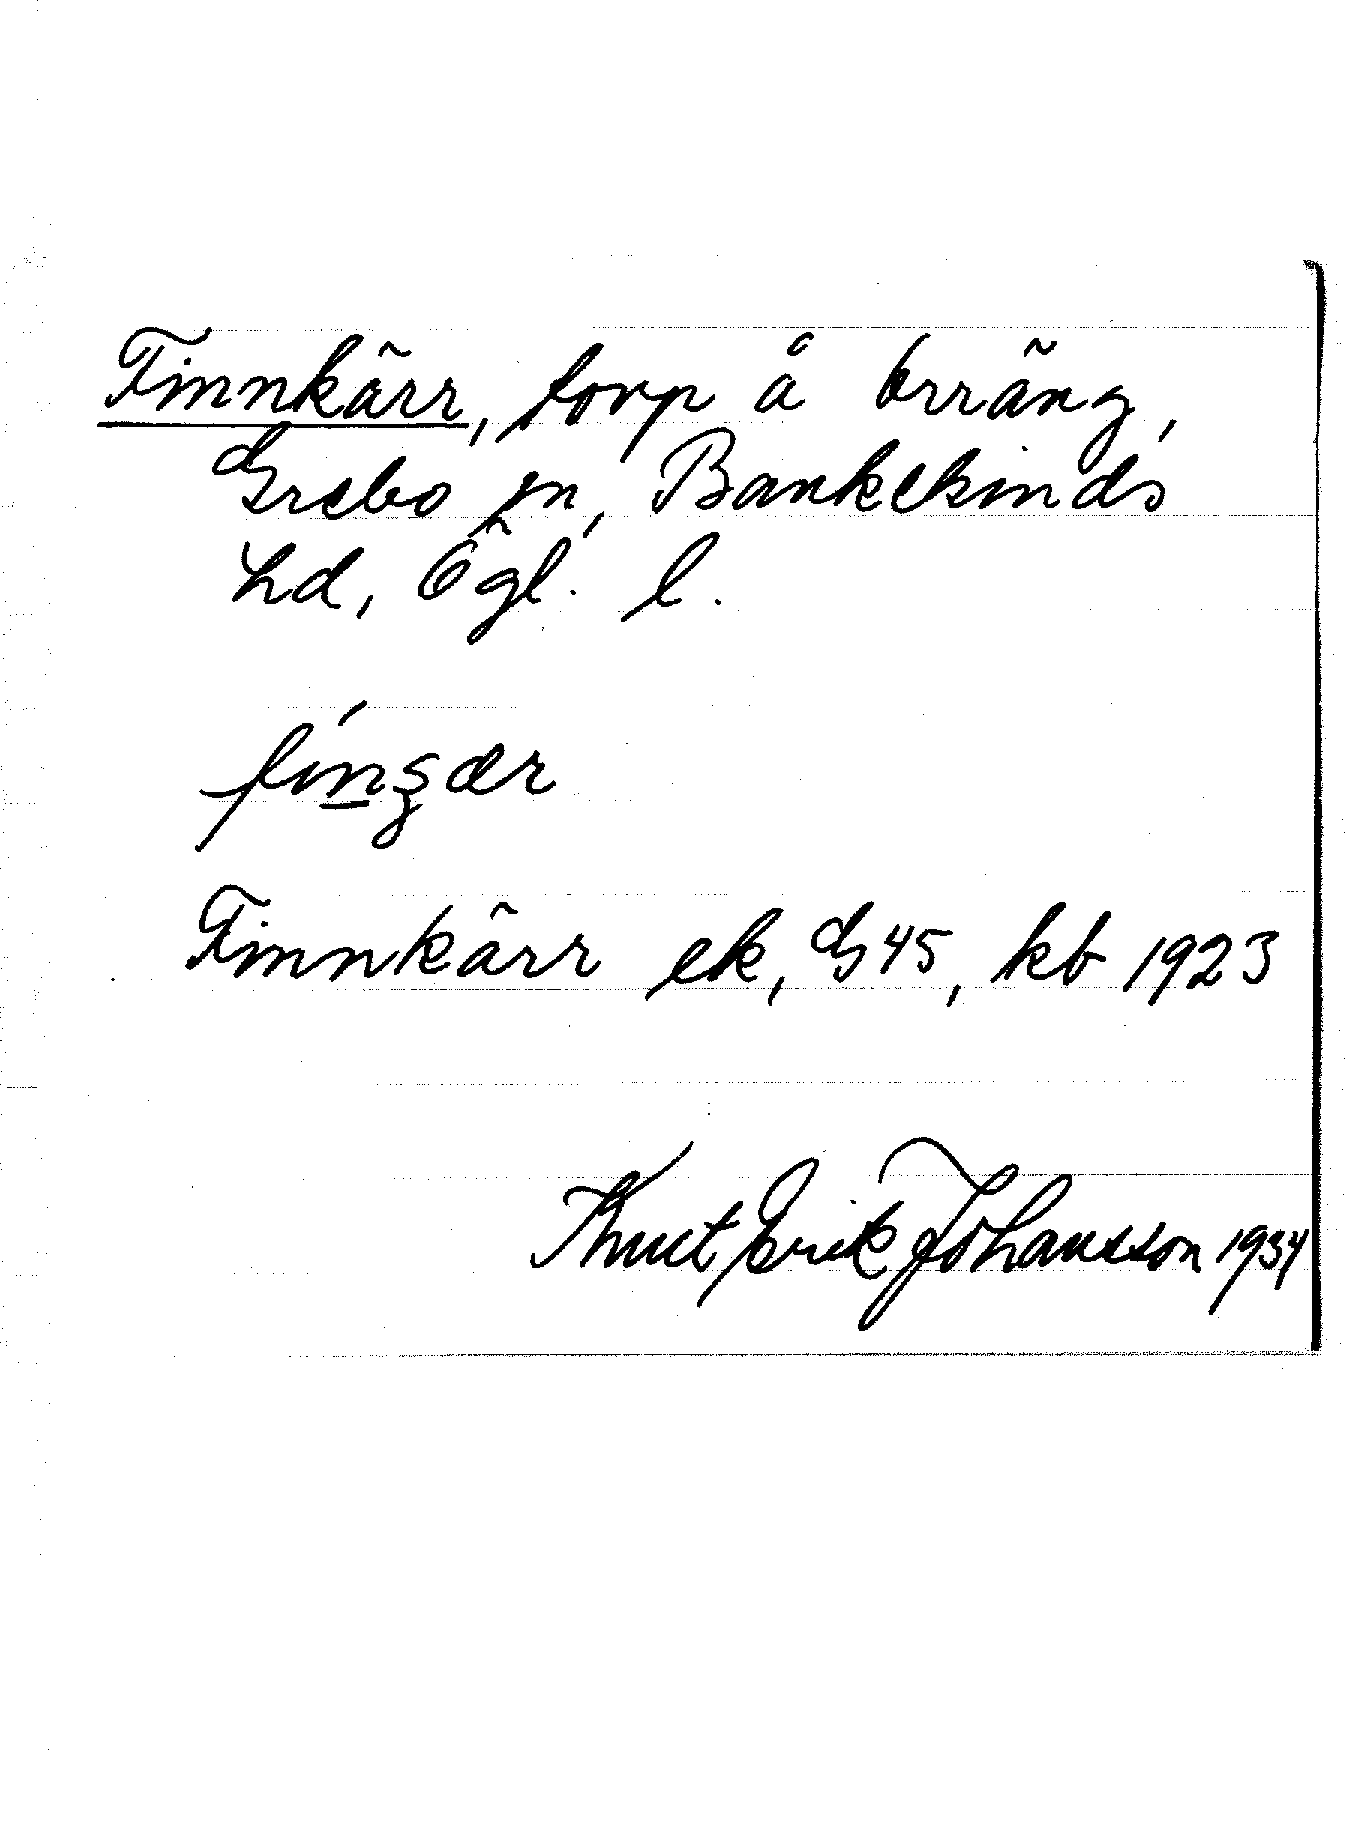 Finnkärr, torp å Orräng,
Grebo sn, Bankekinds
hd, Ögl. l.
Finnkärr ek, G 45, kb 1923
Knut Erik Johansson 1934